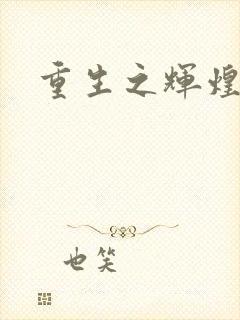 重生之辉煌
也笑